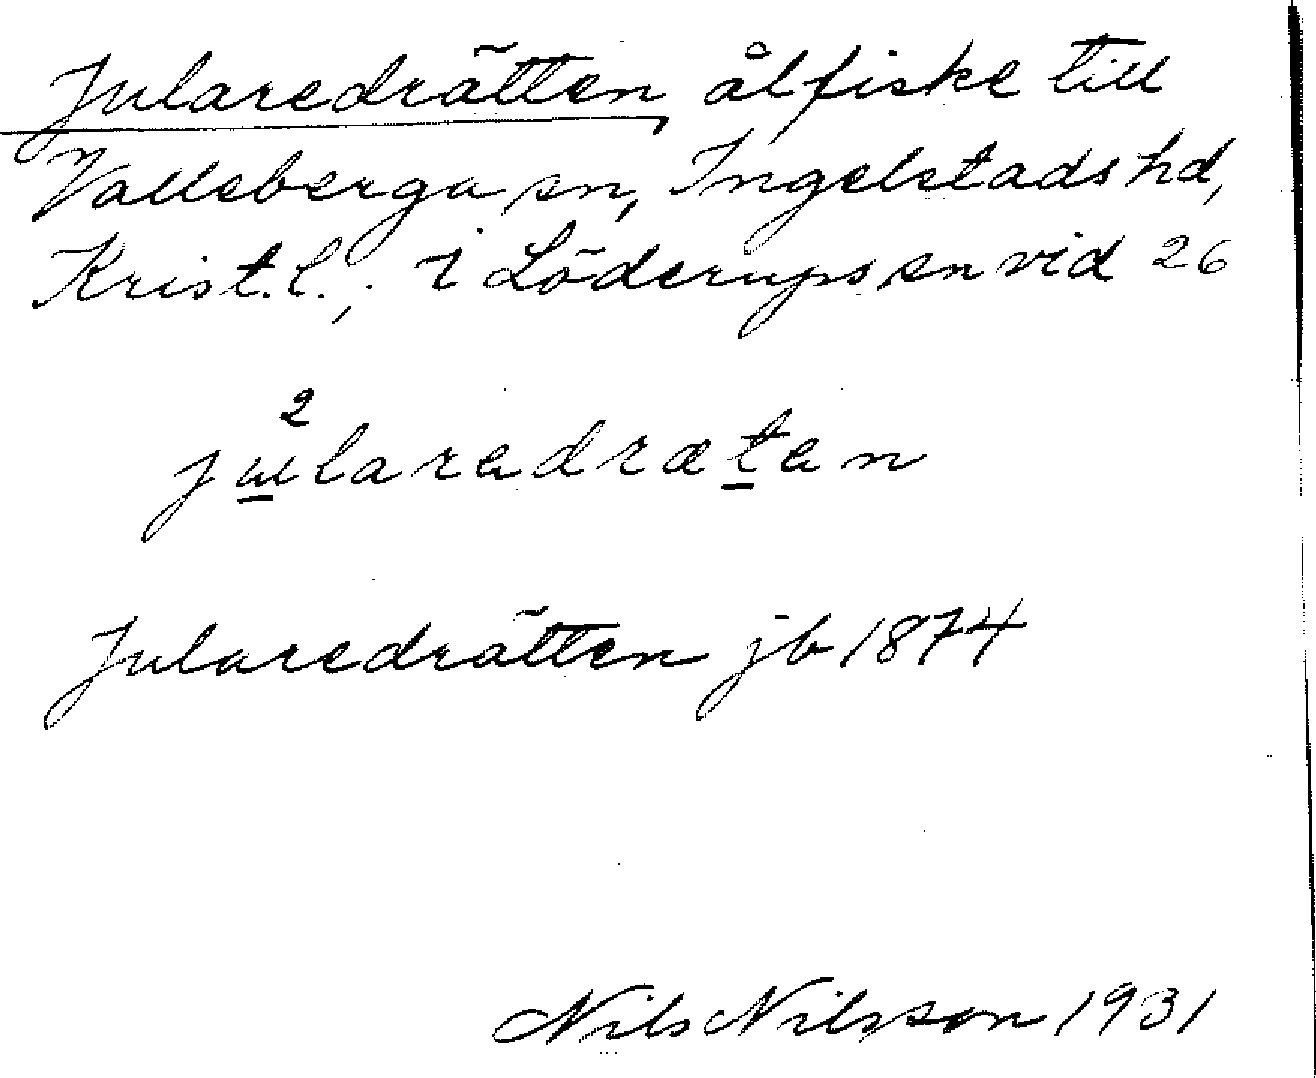 Jularedrätten, ålfiske till
Valleberga sn, Ingelstads hd,
Krist. l.; i Löderups sn vid 26
Jularedrätten jb 1874
Nils Nilsson 1931